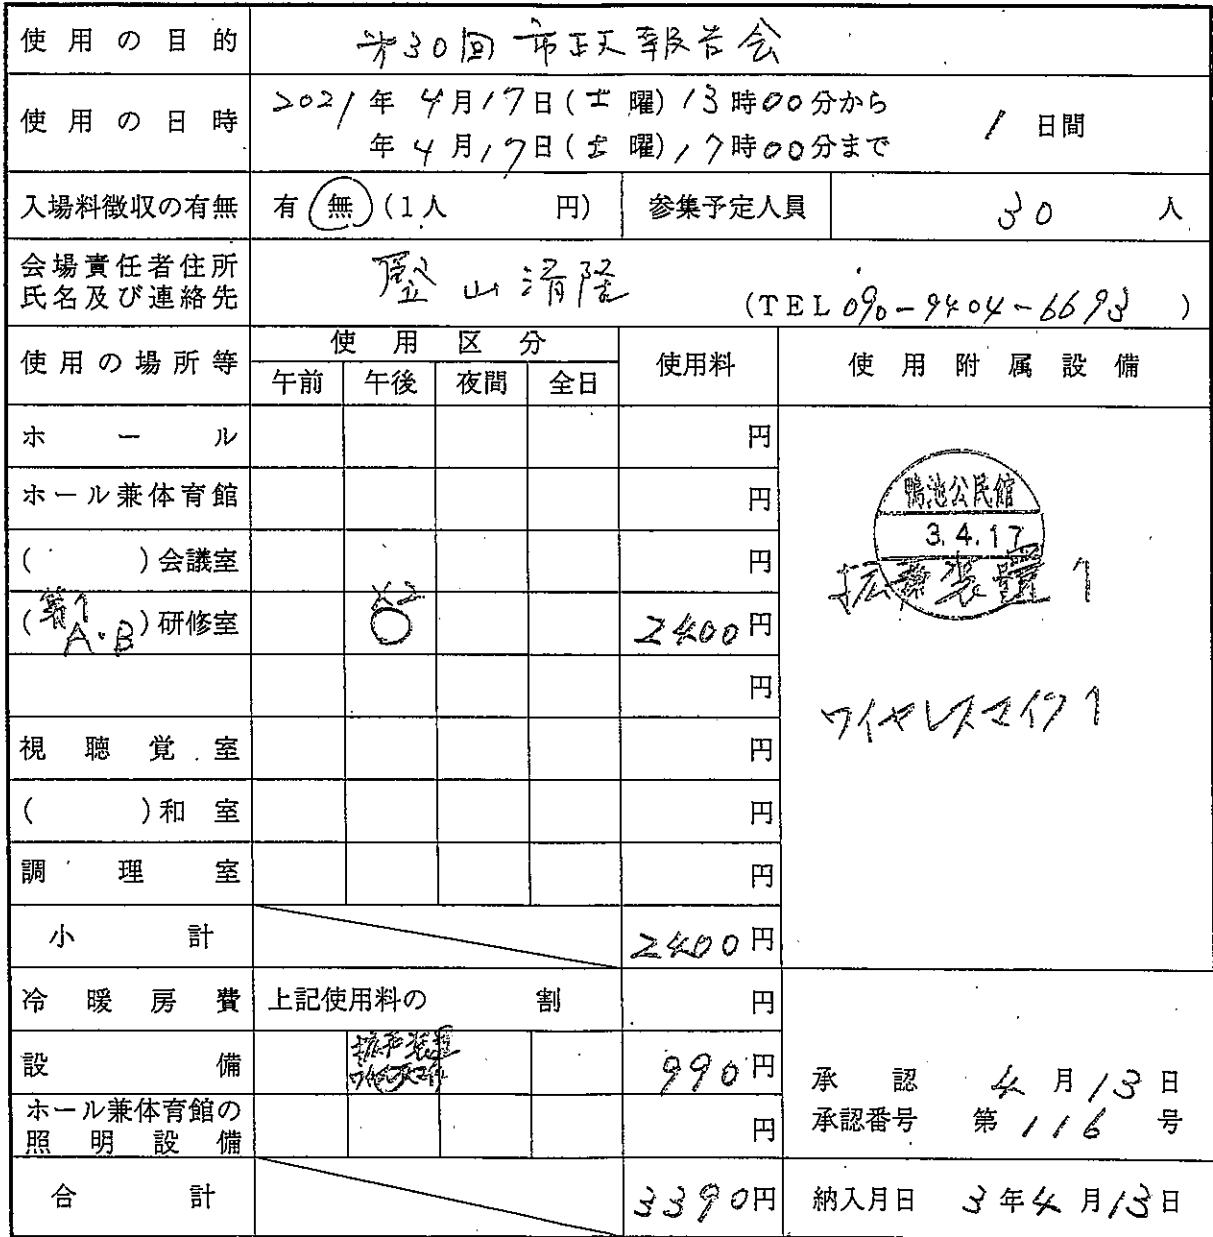 使用の目的 第30回 市政報告会
使用の日時 2021年 4月17日(土曜)13時00分から
年 4月17日(土曜)17時00分まで 1日間
入場料徴収の有無 有 無 (1人 円) 参集予定人員 30 人
会場責任者住所
氏名及び連絡先 山清隆 (TEL 090-9404-6693)
使用の場所等 使用区分 使用料 使用附属設備
午前 午後 夜間 全日
ホール 円
ホール兼体育館 円
鴨池公民館
3.4.17
( )会議室 円
拡声装置 1
(第1 A・B)研修室 ×2 ○ 2400円
円
ワイヤレスマイク 1
視聴覚室 円
( )和室 円
調理室 円
小計 2400円
冷暖房費 上記使用料の 割 円
設備 拡声装置
ワイヤレスマイク 990円
承認 4月13日
ホール兼体育館の
照明設備 円
承認番号 第116号
合計 3390円
納入月日 3年4月13日